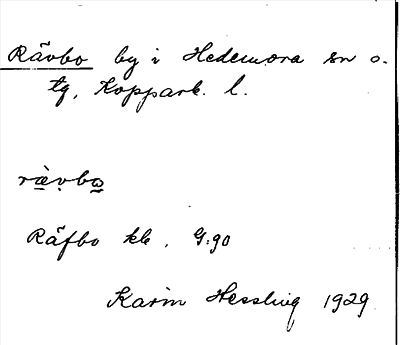 Rävbo by i Hedemora sn o.
tg, Kopparb. l.
rävbo
Räfbo kb, G:90
Karin Hessling 1929